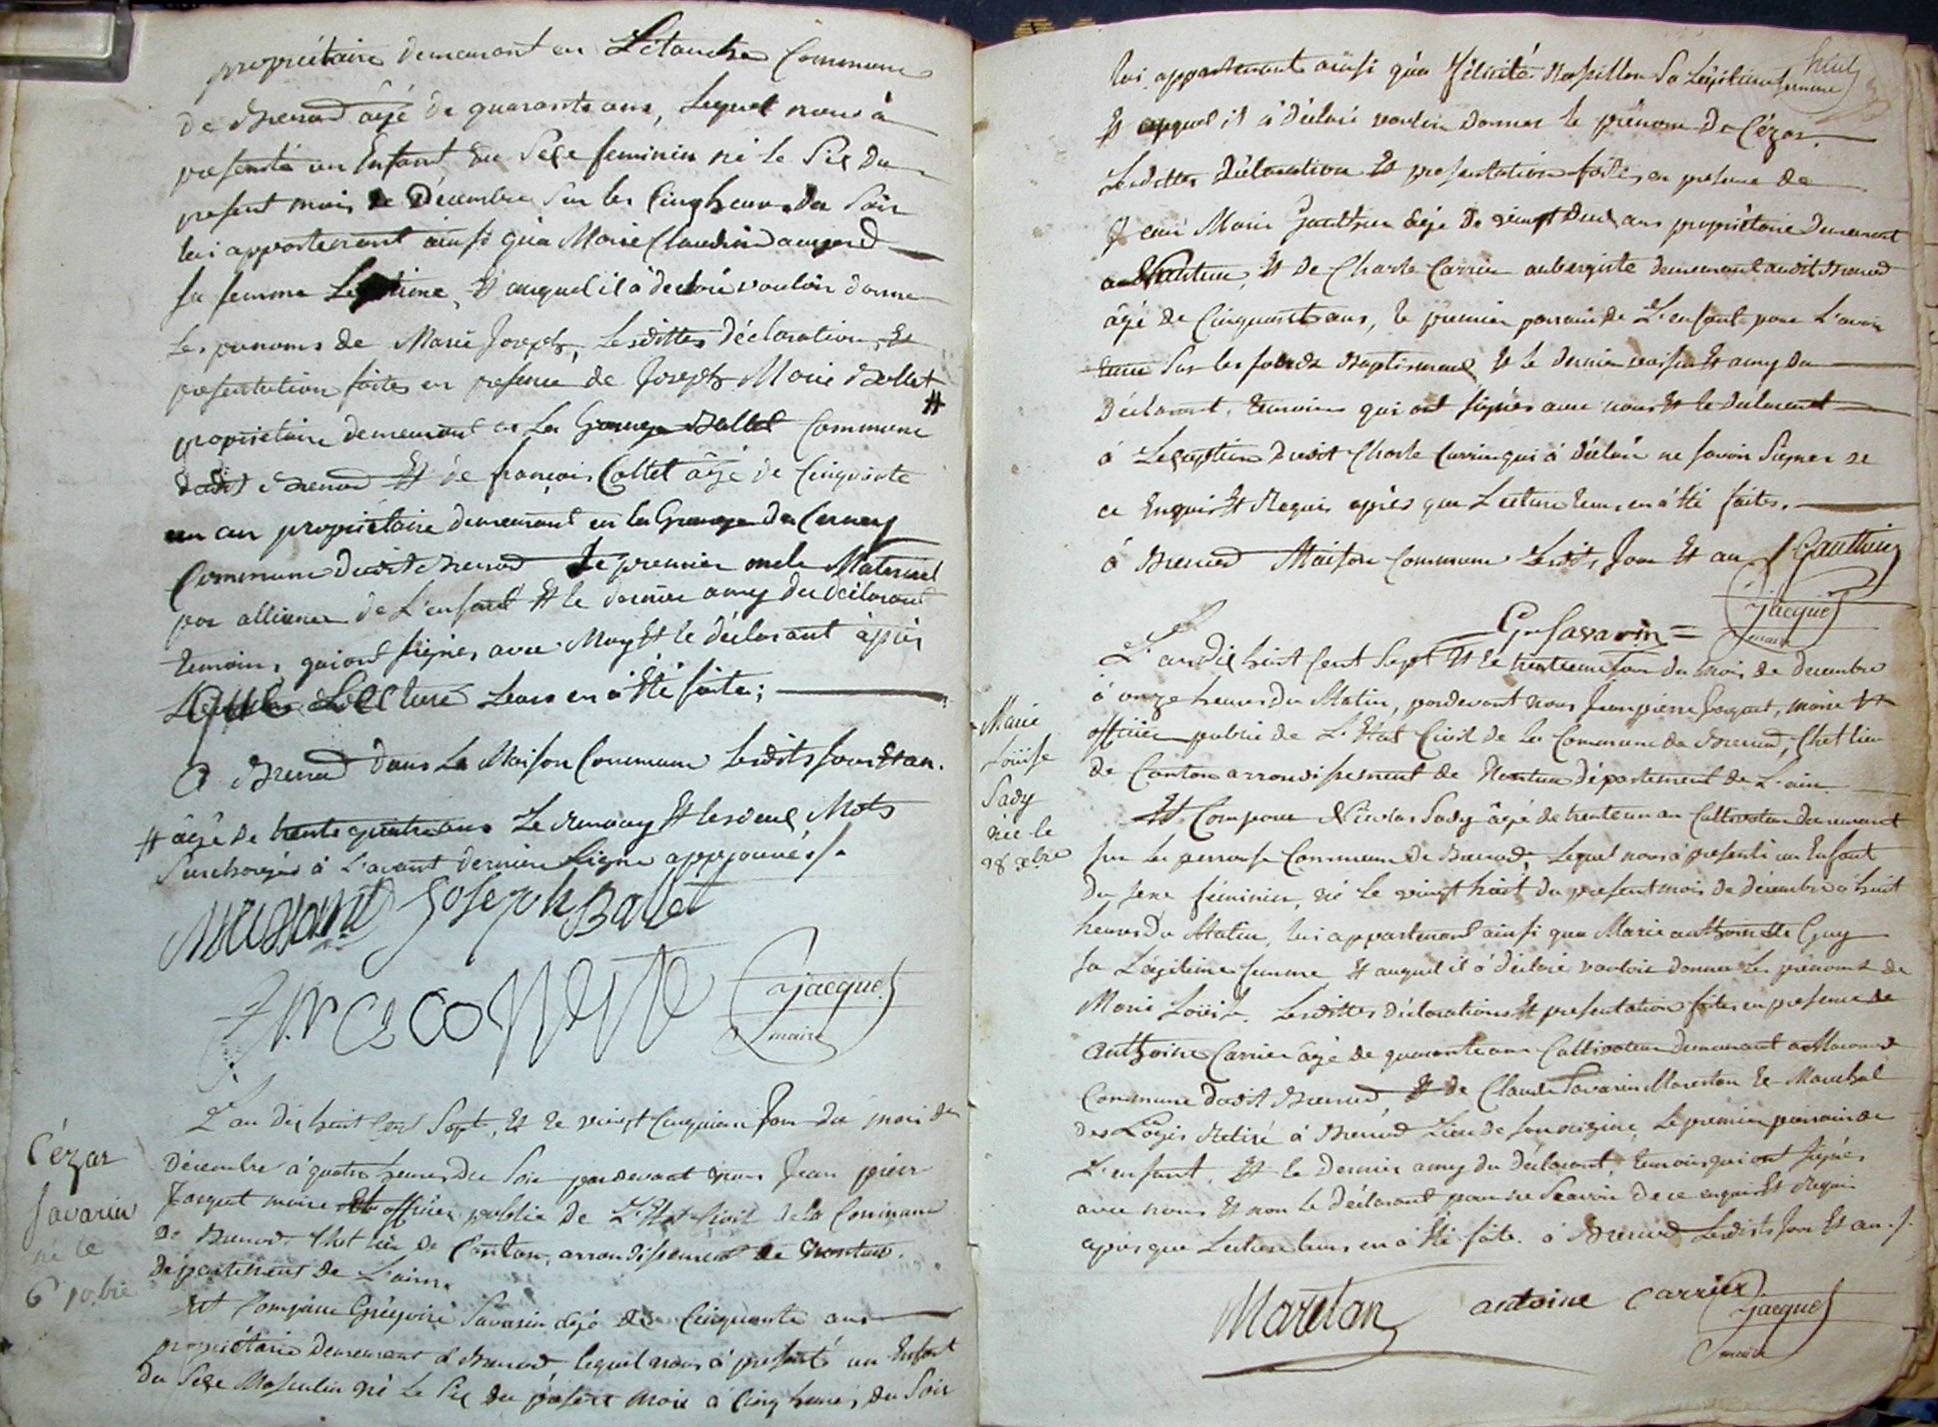 propriétaire demeurant en Létanche Commune
de Brenod âgé de quarante ans, lequel nous à
presenté un Enfant du Sexe feminin né le Six du
present mois de Décembre Sur les Cinq heures du Soir
lui appartenant ainsi qu'a Marie Claudine
sa femme Legitime, Et auquel il à déclaré vouloir donner
Les prenoms de Marie Joseph, Lesdittes Déclaration, Et
presentation faites en presence de Joseph Marie Ballet #
propriétaire demeurant en La Grange Ballet Commune
dudit Brenod Et de françois Collet âgé de Cinquante
un an propriétaire demeurant en la Grange du Cerney
Commune dudit Brenod Le premier oncle Maternel
par alliance de L'enfant Et le dernier amy du déclarant
temoins, qui ont signés avec Moy Et le déclarant après
que Lecture Leurs en à Eté faite;
à Brenod dans La Maison Commune Lesdits Jour Et an.
# âgé de trente quatre ans Le renvoy Et les deux Mots
Surchargés à L'avant dernière Ligne approuvés /.
Joseph Balet
jacquet
maire
Cézar
Savarin
né le
6 10.bre
L'an dix huit Cent Sept, Et le vingt Cinquieme Jour du mois de
Décembre à quatre heures du Soir pardevant nous Jean pierre
Jacquet maire Et officier public de L'Etat Civil de la Commune
de Brenod Chef lieu de Canton, arrondissement de Nantua.
département de L'ain.
Est Comparu Grégoire Savarin âgé de Cinquante ans
propriétaire demeurant à Brenod lequel nous à présenté un Enfant
du Sexe Masculin né le Six du présent mois à Cinq heures du Soir
huit
lui appartenant ainsi qu'a Félicité Sa Légitime femme
Et auquel il à déclaré vouloir donner le prénom de Cézar.
Lesdittes Déclaration Et presentation faites en presence de
Jean Marie Gauthier âgé de vingt deux ans propriétaire demeurant
a Nantua, Et de Charle Carrier aubergiste demeurant audit Brenod
âgé de Cinquante ans, le premier parrain de L'enfant pour L'avoir
tenu Sur les fonds Baptismaux Et le dernier voisin Et amy du
Déclarant, temoins qui ont signés avec nous Et le Déclarant
à Léxception dudit Charle Carrier qui à déclaré ne savoir Signer de
ce Enquis Et Requis après que Lecture leurs en à Eté faites.
à Brenod Maison Commune Lesdits Jour Et an / Gauthier
Gre Savarin =
jacquet
maire
Marie
Loüise
Sady
née le
28 Xbre
L'an dix huit Cent Sept Et le trentieme Jour du mois de decembre
à onze heures du Matin, pardevant nous Jean pierre Jacquet, maire Et
officier public de L'Etat Civil de la Commune de Brenod, Chef lieu
de Canton arrondissement de Nantua département de L'ain.
Est Comparu Nicolas Sady âgé de trente un an Cultivateur demeurant
Sur la perrouse Commune de Brenod, Lequel nous à presenté un Enfant
du sexe féminin, né le vingt huit du present mois de décembre à huit
heures du Matin, lui appartenant ainsi que Marie anthoinette Guy
sa Légitime femme Et auquel il à déclaré vouloir donner les prénoms de
Marie Loüise. Lesdittes déclarations Et presentation faites en presence de
Anthoine Carrier âgé de quarante ans Cultivateur demeurant a
Commune dudit Brenod Et de Claude Savarin Marestan Ex Marechal
des Logis Retiré à Brenod Lieu de son origine, Le premier parrain de
L'enfant, Et le dernier amy du déclarant, temoins qui ont signés
avec nous Et non le Déclarant pour ne Scavoir de ce enquis Et Requis
après que Lecture leurs en à Eté faite. à Brenod Lesdits Jour Et an. /.
Maretan
antoine Carrier
jacquet
maire